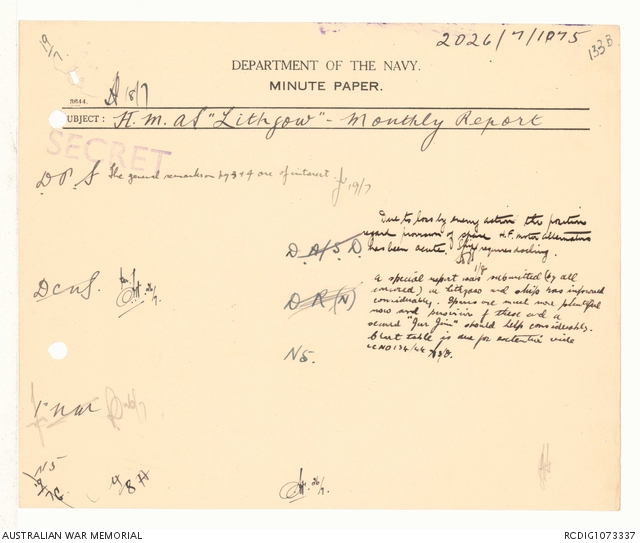 2026/7/1075
133B
19/7
DEPARTMENT OF THE NAVY.
MINUTE PAPER.
18/7
SUBJECT: H.M.A.S "Lithgow" - Monthly Report
SECRET
D.O.S The general remarks on pg 3 & 4 are of interest 19/7
Due to loss by enemy action the position
regard provision of spare H.F. motor alternators
has been acute. Ship requires docking.
D.A/S.D.
1/8
D.C.N.S. 26/7
D.R.(N)
a special report was submitted (by all
concerned) in Lithgow and ships was informed
considerably. Spares are much more plentiful
now and provision of these and a
second "Jur Jim" should help considerably.
Chart table is due for extension vide
ACNO 134/44
NS.
26/7
NS
4/8
26/7
AUSTRALIAN WAR MEMORIAL
RCDIG1073337